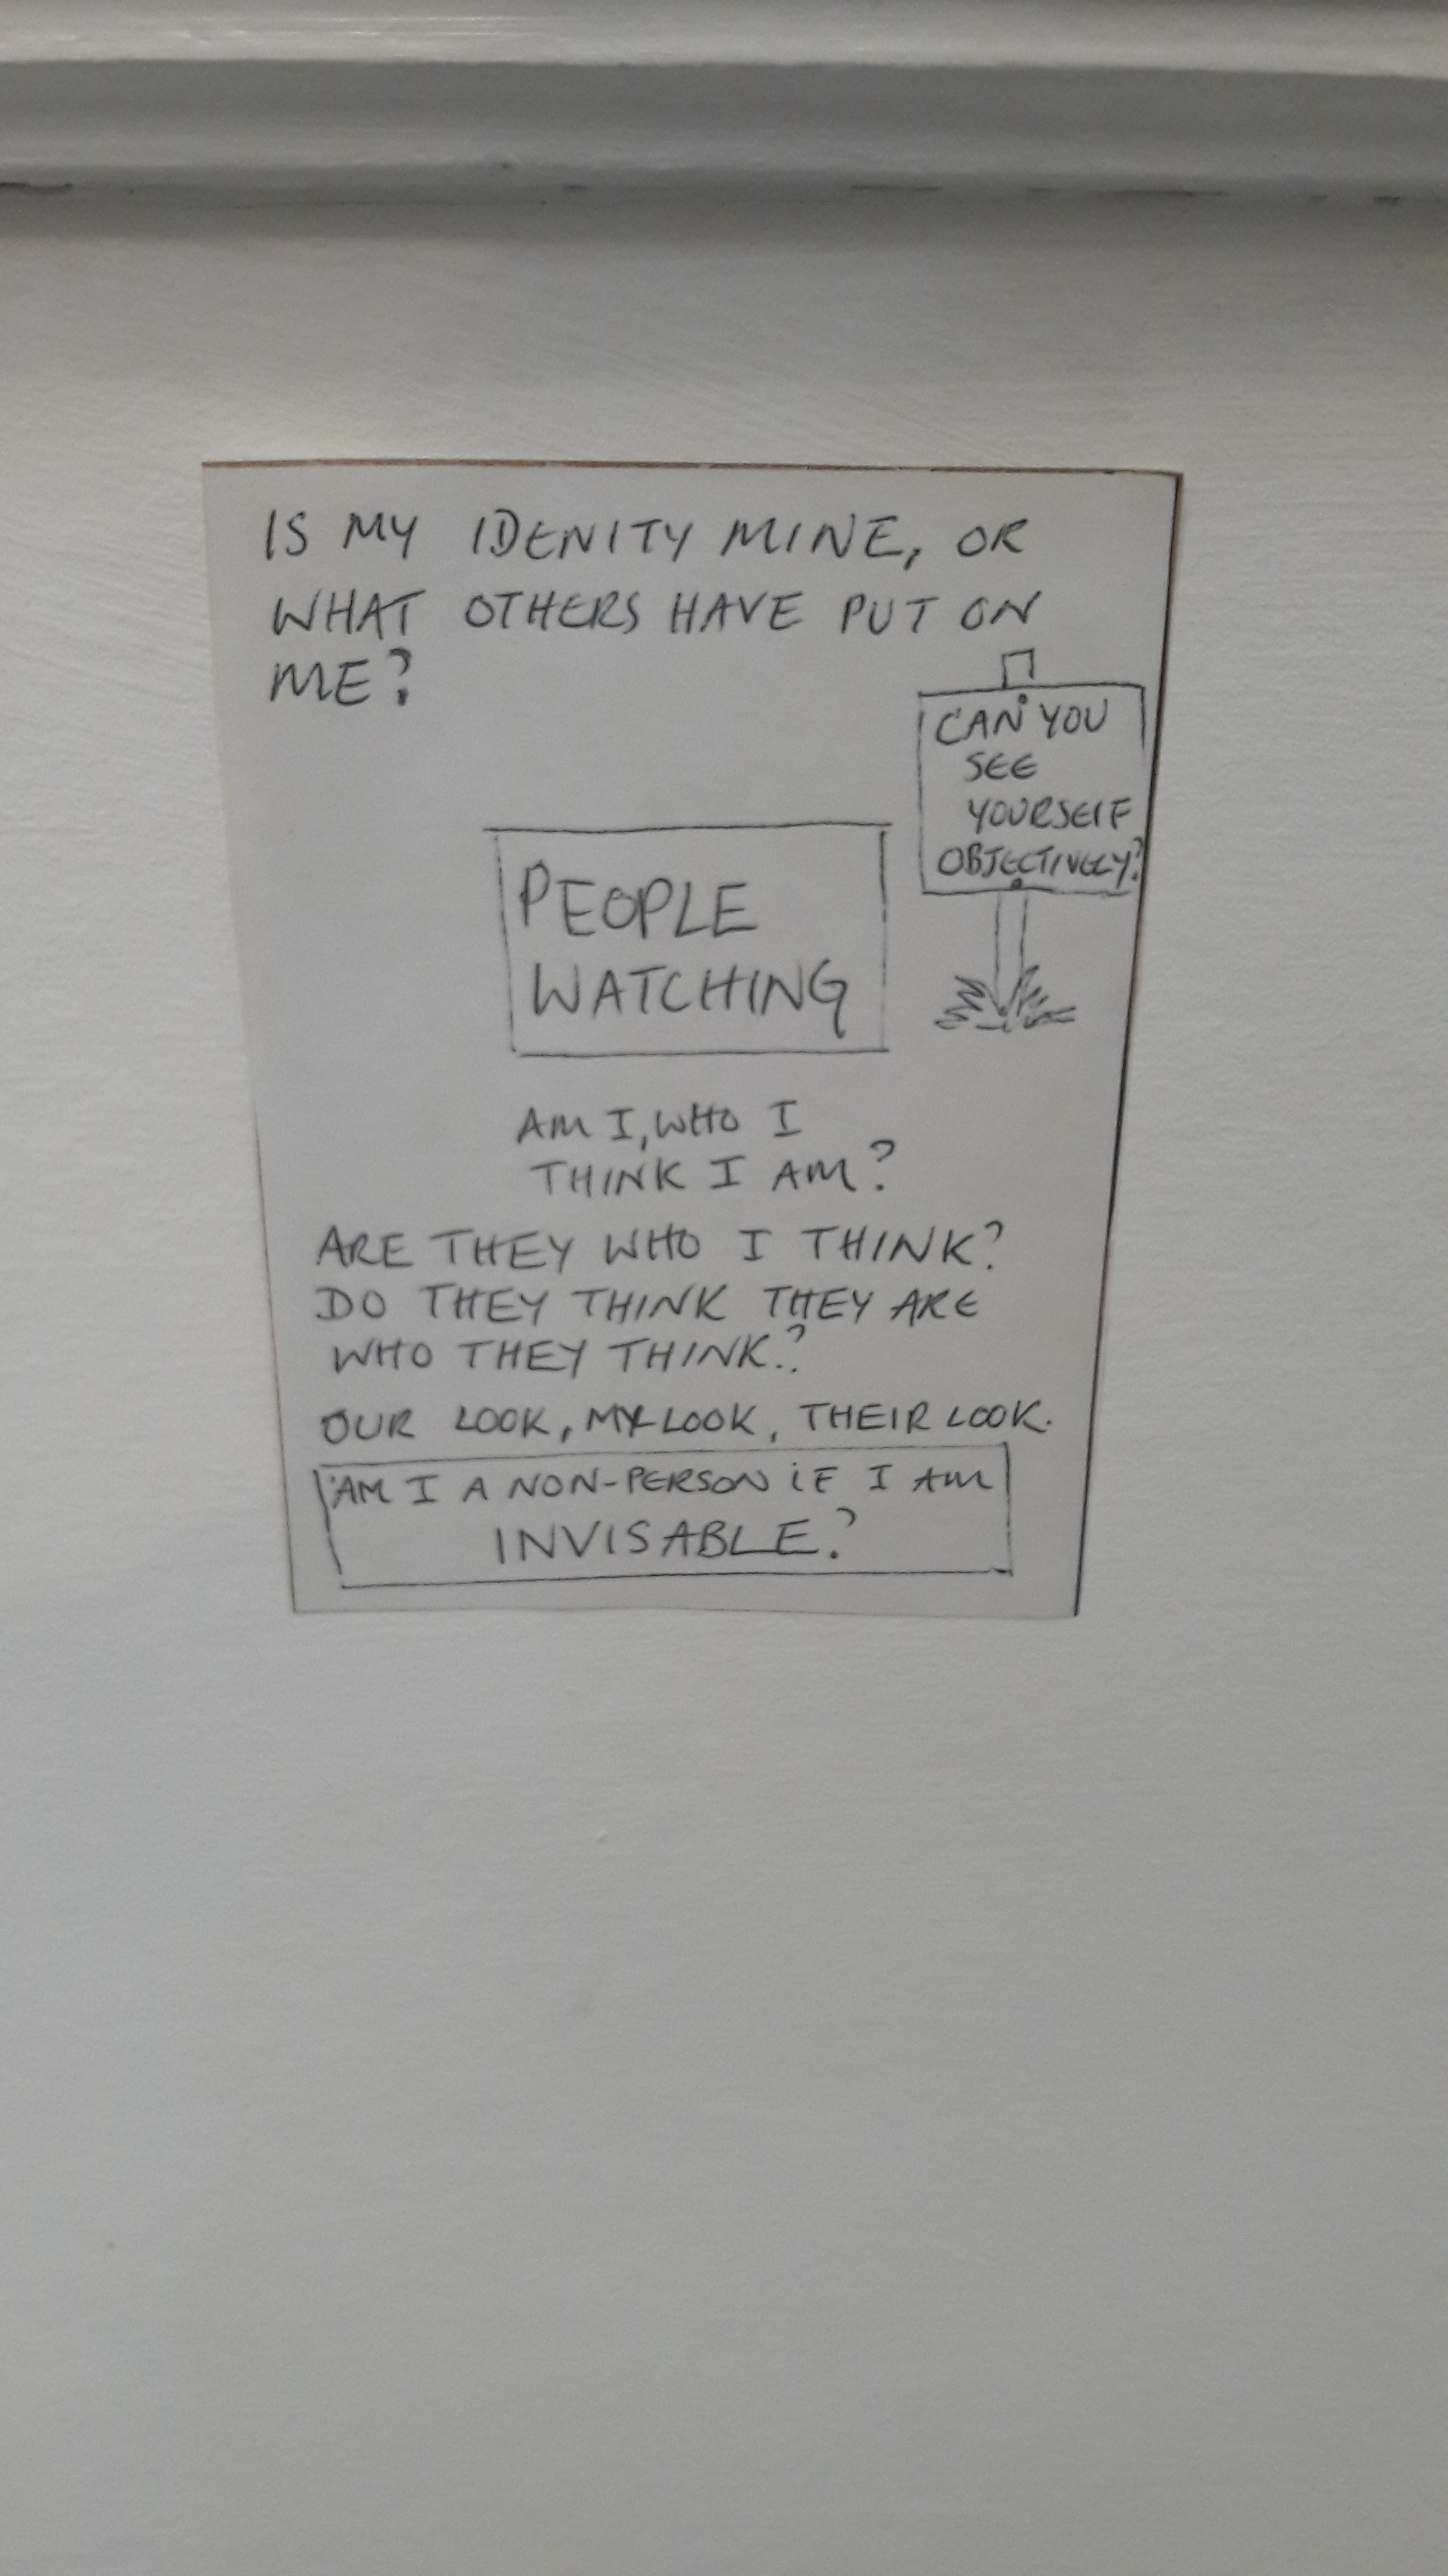 IS MY IDENITY MINE, OR
WHAT OTHERS HAVE PUT ON
ME?
CAN YOU
SEE
YOURSELF
OBJECTIVELY?
PEOPLE
WATCHING
AM I, WHO I
THINK I AM?
ARE THEY WHO I THINK?
DO THEY THINK THEY ARE
WHO THEY THINK.?
OUR LOOK, MY LOOK, THEIR LOOK.
AM I A NON-PERSON IF I AM
INVISABLE?